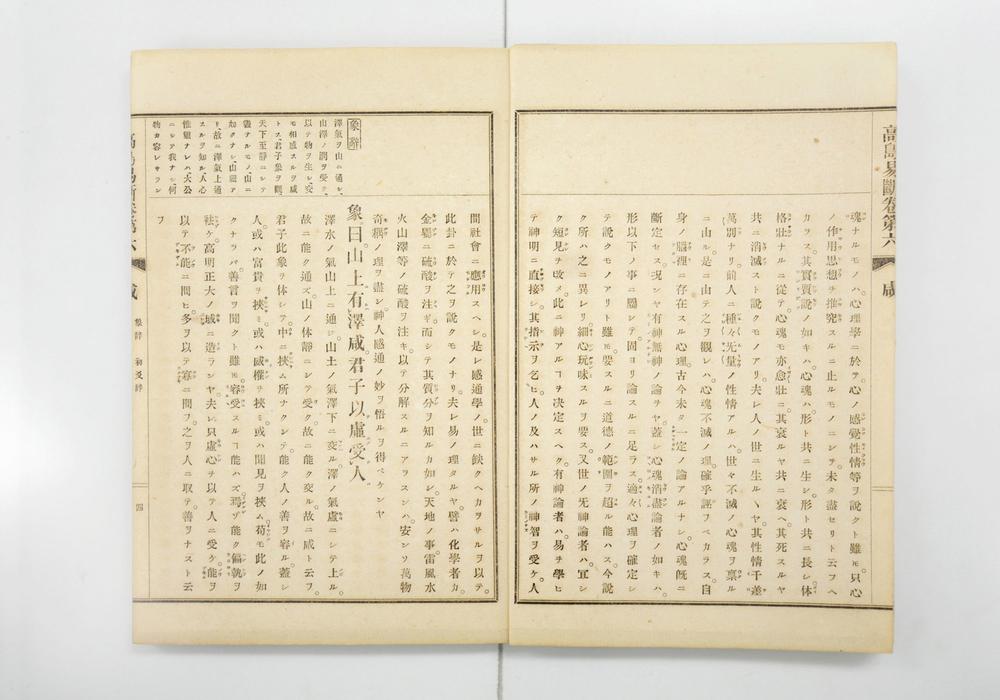 高島易斷卷第六
咸
魂ナルモノハ心理學ニ於テ心ノ感覺性情等ヲ說クト雖モ只心
ノ作用思想ヲ推究スルニ止ルモノニシテ未タ盡セリト云フヘ
カラス其實質說ノ如キハ心魂ハ形ト共ニ生シ形ト共ニ長シ体
格壯ナルニ從テ心魂モ亦愈壯ニ其衰ルヤ共ニ衰ヘ其死スルヤ
共ニ消滅スト說クモノアリ夫レ人ノ世ニ生ルヽヤ其性情千差
萬別ナリ前人ニ種々无量ノ性情アルハ世々不滅ノ心魂ヲ禀ル
ニ由ル是ニ由テ之ヲ觀レハ心魂不滅ノ理確乎誣ヲベカラス自
身ノ腦裡ニ存在スル心理古今未タ一定ノ論アルナシ心魂旣ニ
斷定セス況ンヤ有神無神ノ論ヲヤ蓋シ心魂消盡論者ノ如キハ
形以下ノ事ニ屬シテ固ヨリ論スルニ足ラス適々心理ヲ確定シ
テ說クモノアリト雖モ要スルニ道德ノ範圍ヲ超ル能ハス今說
ク所ハ之ニ異レリ細心玩味スルヲ要ス又世ノ无神論者ハ宜シ
ク短見ヲ改メ此ニ神アルヿヲ决定スヘク有神論者ハ易ヲ學ヒ
テ神明ニ直接シ其指示ヲ乞ヒ人ノ及ハサル所ノ神智ヲ受ケ人
間社會ニ應用スヘシ是レ感通學ノ世ニ缺クヘカラサルヲ以テ
此卦ニ於テ之ヲ說クモノナリ夫レ易ノ理タルヤ譬ハ化學者カ
金鑛ニ硫酸ヲ注ギ而シテ其質分ヲ知ルカ如シ天地ノ事雷風水
火山澤等ノ硫酸ヲ注キ以テ分解スルニアラスンハ安ンソ萬物
奇稱ノ理ヲ盡シ神人感通ノ妙ヲ悟ルヲ得ベケンヤ
象曰山上有澤咸君子以虛受人
澤水ノ氣山上ニ通シ山土ノ氣澤下ニ交ル澤ノ氣虛ニシテ上ル
故ニ能ク通ズ山ノ体靜ニシテ受ク故ニ能ク交ル故ニ咸ト云フ
君子此象ヲ体シテ中ニ挾ム所ナクシテ能ク人ノ善ヲ容ル蓋シ
人或ハ富貴ヲ挾ミ或ハ威權ヲ挾ミ或ハ聞見ヲ挾ム苟モ此ノ如
クナラバ善言ヲ聞クト雖モ容受スルヿ能ハズ焉ゾ能ク偏執ヲ
祛ケ高明正大ノ域ニ造ランヤ夫レ只虛心ヲ以テ人ニ受ケ能ヲ
以テ不能ニ問ヒ多ヲ以テ寡ニ問フ之ヲ人ニ取テ善ヲナスト云
フ
象辭
澤氣ヲ山ニ通シ
山澤ノ潤ヲ受ケ
以テ物ヲ生シ交
モ相感スルヲ咸
トス君子象ヲ觀
天下至靜ニシテ
靈ナルモノ山ニ
如クナシ山靈ア
リ故ニ澤氣上通
スルヲ知ル人心
惟靈ナレハ大公
ニシテ我ナシ何
物カ容レサラン
咸
象辭
初爻辭
四